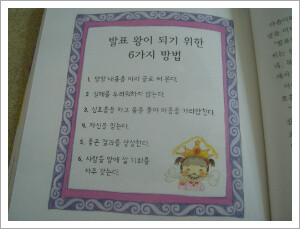 발표 왕이 되기 위한
6가지 방법
1. 말할 내용을 미리 글로 써 본다.
2. 실패를 두려워하지 않는다.
3. 심호흡을 하고 몸을 풀어 마음을 가라앉힌다.
4. 자신을 믿는다.
5. 좋은 결과를 상상한다.
6. 사람들 앞에 설 기회를
자주 갖는다.